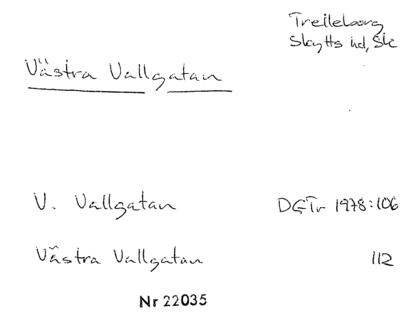 Trelleborg
Skytts hd, Sk
Västra Vallgatan
V. Vallgatan DGTr 1978:106
Västra Vallgatan 112
Nr 22035